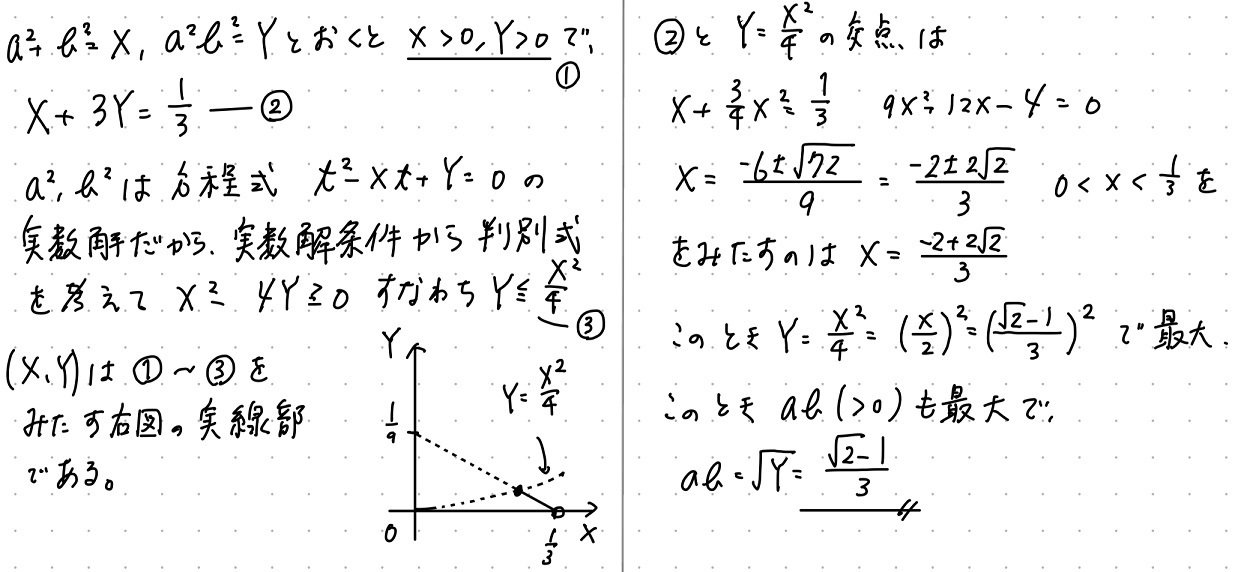 a²+b²=X, a²b²=Yとおくと X>0, Y>0 で, ①
X+3Y=1/3 ―②
a², b² は方程式 t²-Xt+Y=0 の
実数解だから、実数解条件から判別式
を考えて X²-4Y≧0 すなわち Y≦X²/4 ―③
(X,Y)は ①～③を
みたす右図の実線部
である。
Y
Y=X²/4
1/9
0
1/3
X
②と Y=X²/4 の交点は
X+3/4X²=1/3 9X²+12X-4=0
X=(-6±√72)/9=(-2±2√2)/3 0<X<1/3 を
をみたすのは X=(-2+2√2)/3
このとき Y=X²/4=(X/2)²=((√2-1)/3)² で最大.
このとき ab(>0)も最大で,
ab=√Y=(√2-1)/3